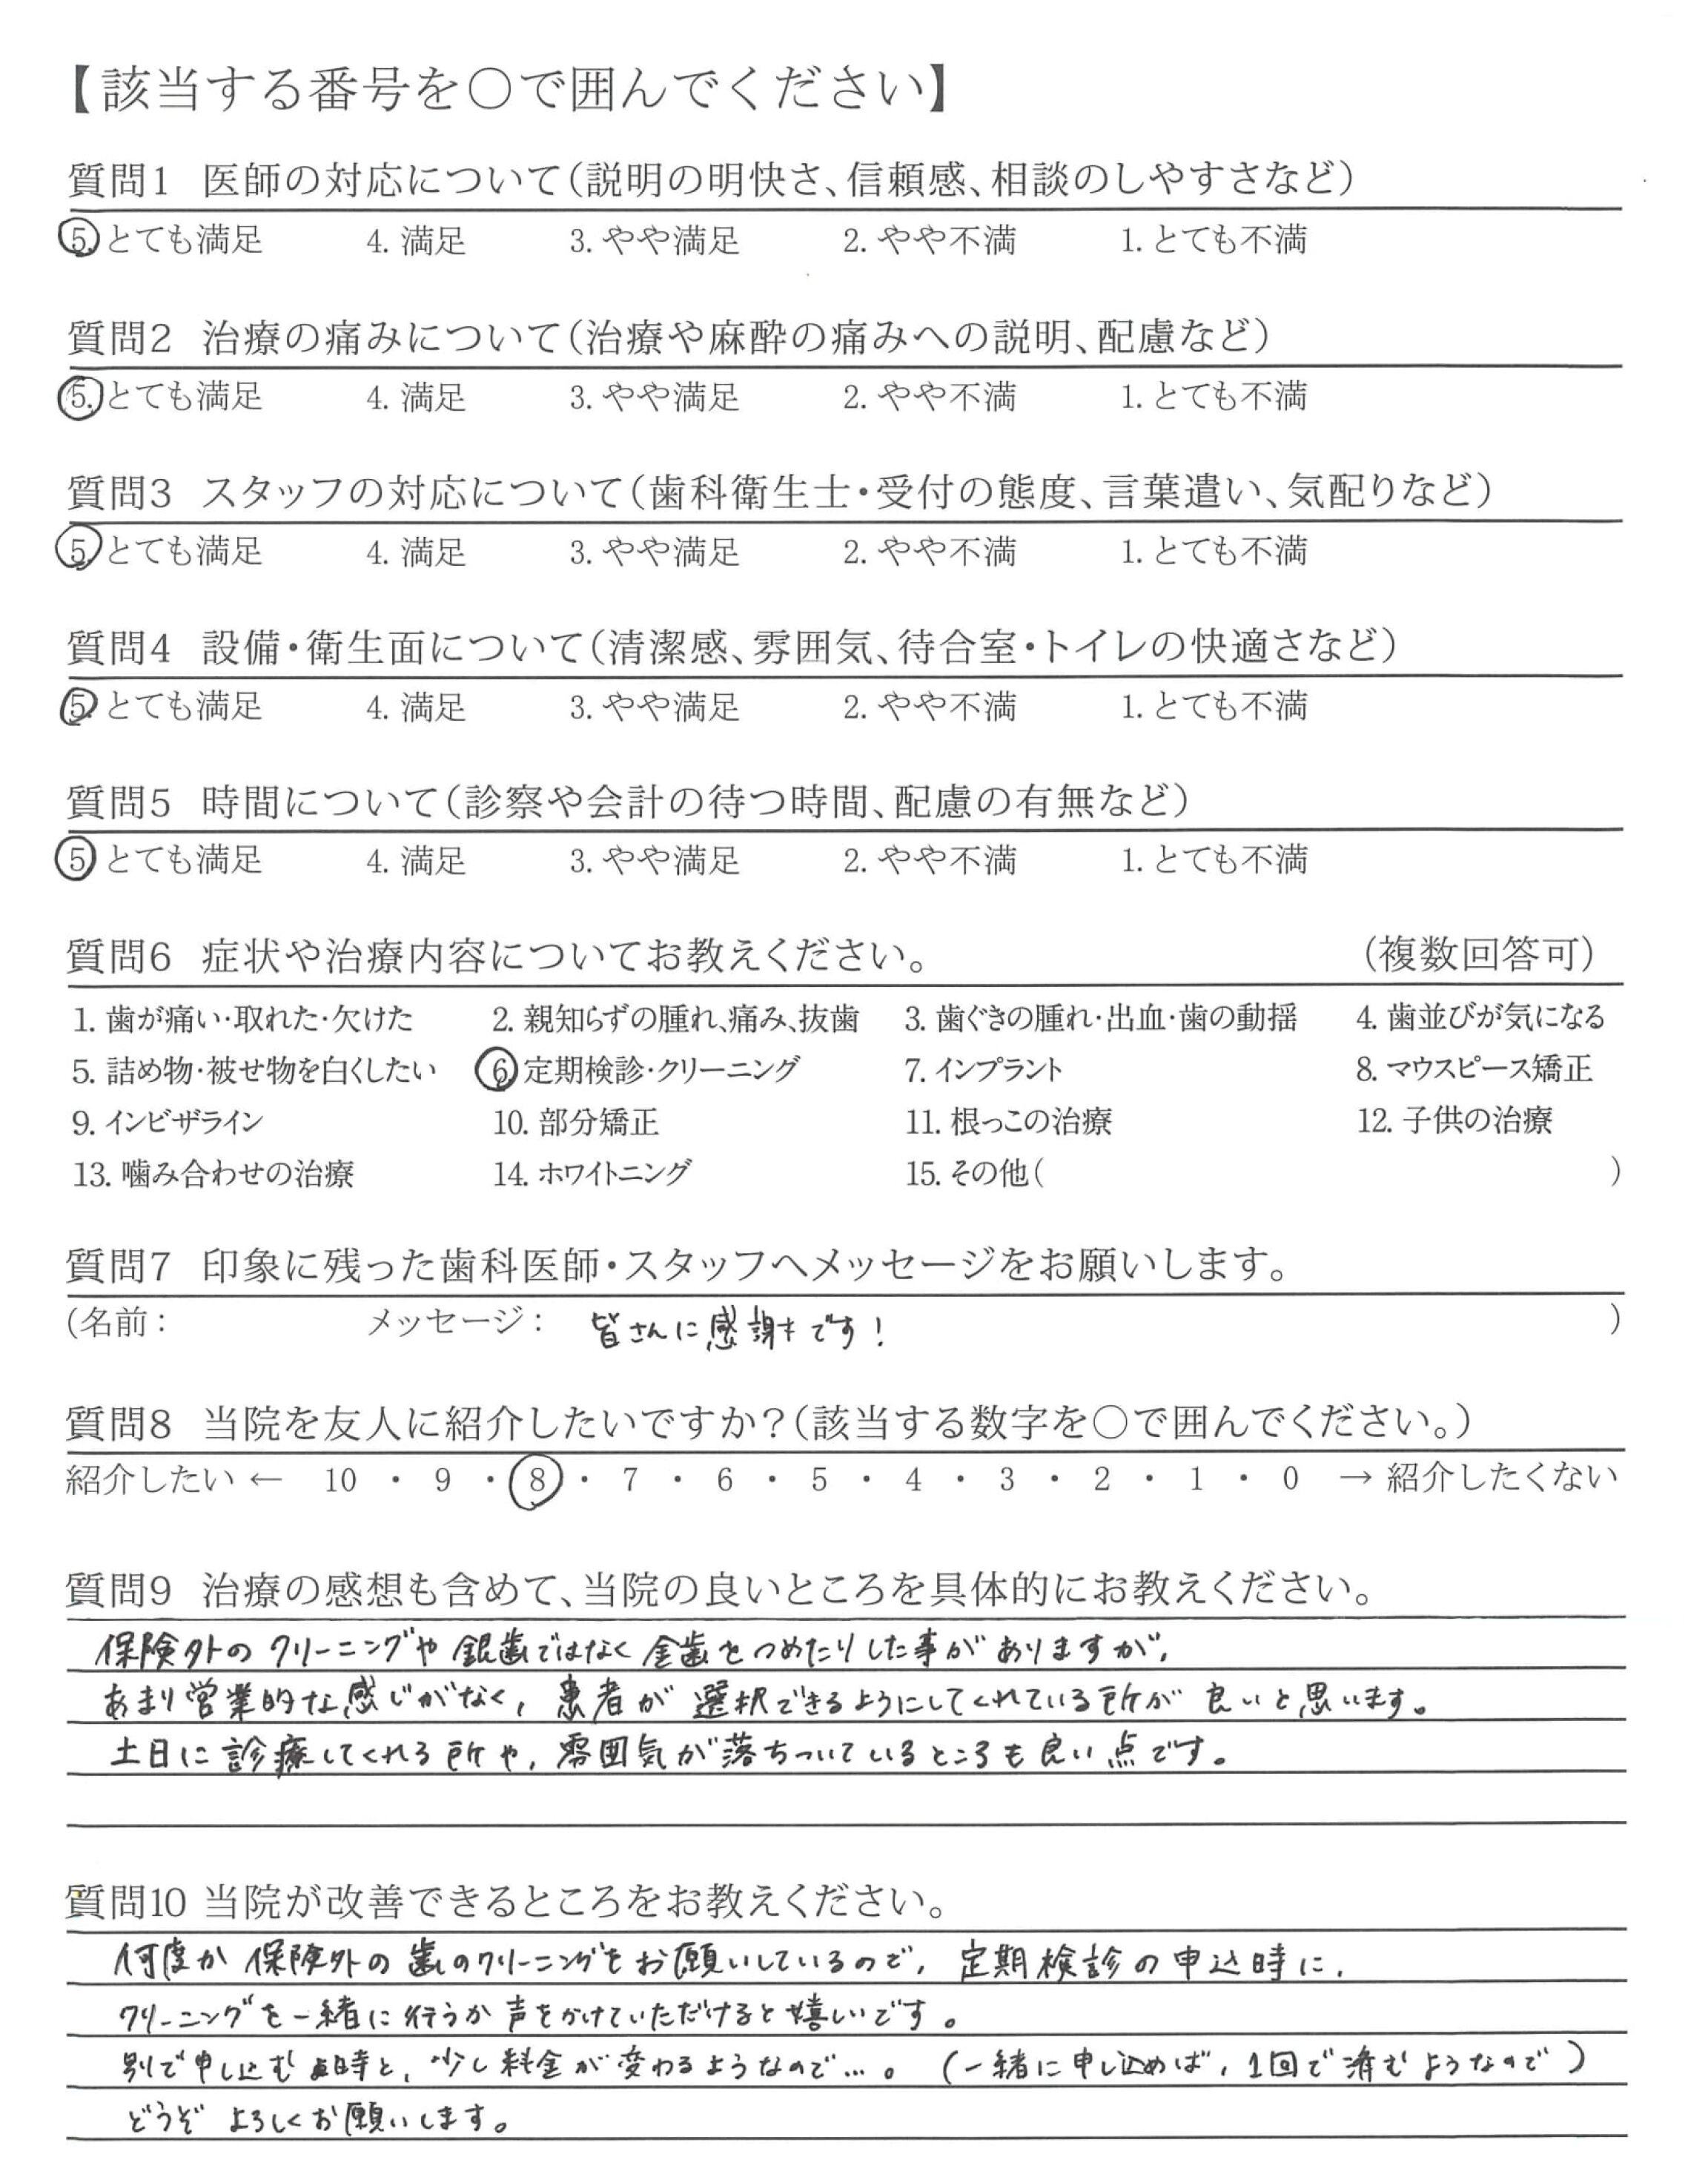 【該当する番号を○で囲んでください】
質問1 医師の対応について(説明の明快さ、信頼感、相談のしやすさなど)
5. とても満足 4. 満足 3. やや満足 2. やや不満 1. とても不満
質問2 治療の痛みについて(治療や麻酔の痛みへの説明、配慮など)
5. とても満足 4. 満足 3. やや満足 2. やや不満 1. とても不満
質問3 スタッフの対応について(歯科衛生士・受付の態度、言葉遣い、気配りなど)
5. とても満足 4. 満足 3. やや満足 2. やや不満 1. とても不満
質問4 設備・衛生面について(清潔感、雰囲気、待合室・トイレの快適さなど)
5. とても満足 4. 満足 3. やや満足 2. やや不満 1. とても不満
質問5 時間について(診察や会計の待つ時間、配慮の有無など)
5 とても満足 4. 満足 3. やや満足 2. やや不満 1. とても不満
質問6 症状や治療内容についてお教えください。 (複数回答可)
1. 歯が痛い・取れた・欠けた 2. 親知らずの腫れ、痛み、抜歯 3. 歯ぐきの腫れ・出血・歯の動揺 4. 歯並びが気になる
5. 詰め物・被せ物を白くしたい 6. 定期検診・クリーニング 7. インプラント 8. マウスピース矯正
9. インビザライン 10. 部分矯正 11. 根っこの治療 12. 子供の治療
13. 噛み合わせの治療 14. ホワイトニング 15. その他( )
質問7 印象に残った歯科医師・スタッフへメッセージをお願いします。
(名前: メッセージ: 皆さんに感謝です! )
質問8 当院を友人に紹介したいですか?(該当する数字を○で囲んでください。)
紹介したい ← 10 ・ 9 ・ 8 ・ 7 ・ 6 ・ 5 ・ 4 ・ 3 ・ 2 ・ 1 ・ 0 → 紹介したくない
質問9 治療の感想も含めて、当院の良いところを具体的にお教えください。
保険外のクリーニングや銀歯ではなく金歯をつめたりした事がありますが、
あまり営業的な感じがなく、患者が選択できるようにしてくれている所が良いと思います。
土日に診療してくれる所や、雰囲気が落ちついているところも良い点です。
質問10 当院が改善できるところをお教えください。
何度か保険外の歯のクリーニングをお願いしているので、定期検診の申込時に、
クリーニングを一緒に行うか声をかけていただけると嬉しいです。
別で申し込む時と、少し料金が変わるようなので…。(一緒に申し込めば、1回で済むようなので)
どうぞよろしくお願いします。